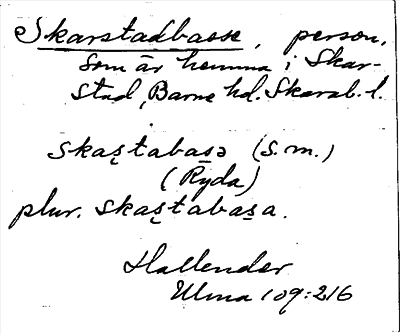 Skarstadbasse, person,
som är hemma i Skar-
stad, Barne hd. Skarab. l.
skaʂtabasə (s.m.)
(Ryda)
plur. skaʂtabasa.
Hallender
Ulma 109:216